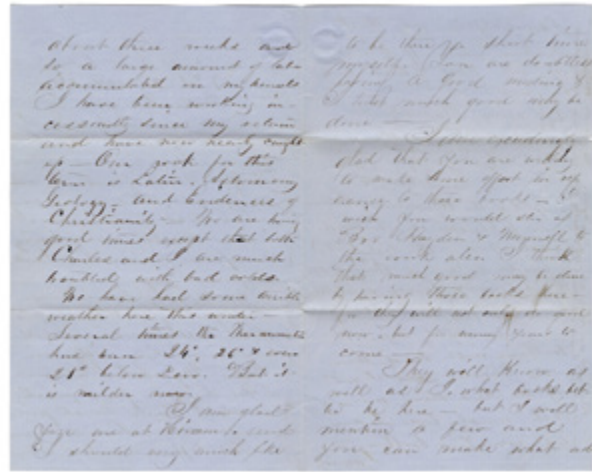 about three weeks and
so a large amount of labor
accumulated on my hands
I have been working in-
cessantly since my return
and have now nearly caught
up — Our work for this
term is Latin, Astronomy
Geology, and Evidences of
Christianity — We are having
good times except that both
Charles and I are much
troubled with bad colds.
We have had some cold
weather here this winter —
Several times the Thermometer
has been 24°, 26° & even
28° below Zero. But it
is milder now.
I am glad
you are at Hiram, and
I should very much like
to be there a short time
myself. You are doubtless
having a good meeting &
I hope much good may be
done —
I am exceedingly
glad that you are making
to make some effort in
to these books — I
wish you would see
Bro. Hayden &
the work also. I think
that much good may be done
by having those books there —
for they will not only do good
now, but for many years to
come —
They will know as
well as I what books
to be here — but I will
mention a few and
you can make what ad